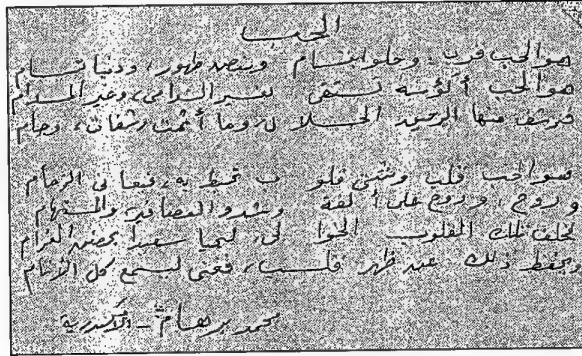 الحب
هو الحب قرب، وحلو ابتسام وينبض طهور، ودنيا تسام
هو الحب أكؤسه تستقى لغير الندامى، وغير المدام
فيرشف منها الرحيق الحلا ل، وما أثمت رشفات، وجام
هو الحب قلب وشتى قلو ب تحط به، فتعالى الزحام
وروح، وروح على ألفة وشدو العصافير والمستهام
تحلق تلك القلوب الحوا لى، ليحيا سعيدا بحضن الغرام
ويحفظ ذلك عند ظهر قلب، فعنى ليسمع كل الأنام
محمد برهام - الإسكندرية